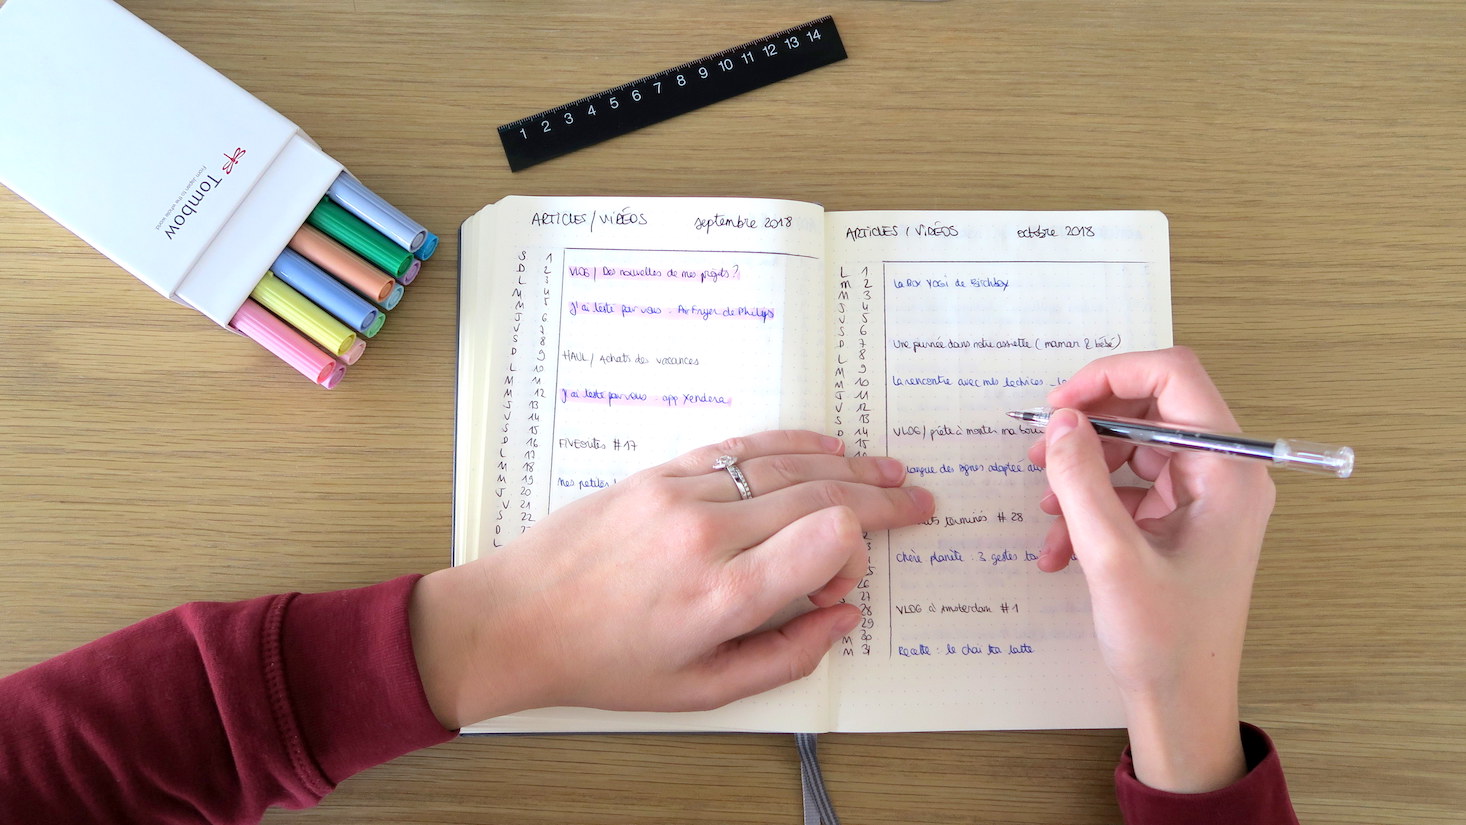 1 2 3 4 5 6 7 8 9 10 11 12 13 14
Tombow
From Japan to the whole world
ARTICLES / VIDÉOS septembre 2018
S 1
D 2 VLOG / Des nouvelles de mes projets ?
L 3
M 4
M 5 J'ai testé pour vous . Air Fryer de Philips
J 6
V 7
S 8
D 9 HAUL / Achats des vacances
L 10
M 11
M 12 J'ai testé pour vous . app Xendera
J 13
V 14
S 15
D 16 FAVORITES #17
L 17
M 18
M 19 mes petites
J 20
V 21
S 22
D
L
ARTICLES / VIDÉOS octobre 2018
L 1
M 2 La Box Yogi de Birchbox
M 3
J 4
V 5
S 6
D 7 Une journée dans notre assiette ( maman & bébé )
L 8
M 9
M 10 La rencontre avec mes lectrices
J 11
V 12
S 13
D 14 VLOG / prête à monter ma
15
langue des signes adaptée au
terminés #28
Chère planète . 3 gestes
26
27
28 VLOG à Amsterdam #1
29
M 30
M 31 Recette : le chai tea latte